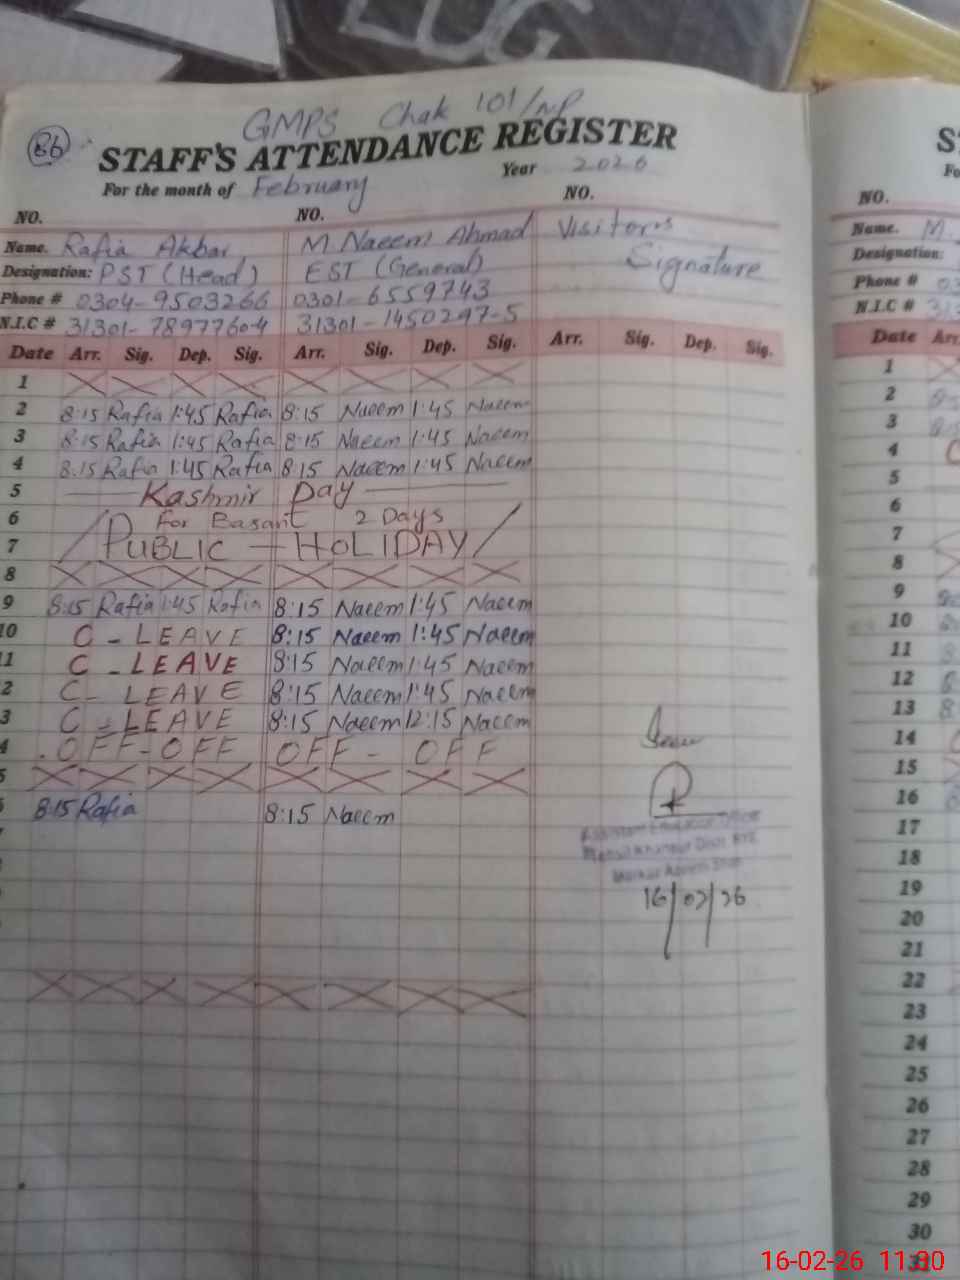 LUG
GMPS Chak 101/NP
86
STAFF'S ATTENDANCE REGISTER
For the month of February Year 2026
NO. NO. NO.
Name. Rafia Akbar M. Naeem Ahmad Visitors
Designation: PST (Head) EST (General) Signature
Phone # 0304-9503266 0301-6559743
N.I.C # 31301-7897760-4 31301-1450297-5
Date Arr. Sig. Dep. Sig. Arr. Sig. Dep. Sig. Arr. Sig. Dep. Sig.
1
2 8:15 Rafia 1:45 Rafia 8:15 Naeem 1:45 Naeem
3 8:15 Rafia 1:45 Rafia 8:15 Naeem 1:45 Naeem
4 8:15 Rafia 1:45 Rafia 8:15 Naeem 1:45 Naeem
5 Kashmir Day
6 For Basant 2 Days
7 PUBLIC - HOLIDAY
8
9 8:15 Rafia 1:45 Rafia 8:15 Naeem 1:45 Naeem
10 C - LEAVE 8:15 Naeem 1:45 Naeem
11 C - LEAVE 8:15 Naeem 1:45 Naeem
2 C - LEAVE 8:15 Naeem 1:45 Naeem
3 C - LEAVE 8:15 Naeem 12:15 Naeem
4 OFF - OFF OFF - OFF
5
8:15 Rafia 8:15 Naeem
Assistant Education Officer
Tehsil Khanpur Distt. RYK
Markaz
16/02/26
NO.
Name. M.
Designation:
Phone # 03
N.I.C # 313
Date Arr.
1
2
3
4
5
6
7
8
9
10
11
12
13
14
15
16
17
18
19
20
21
22
23
24
25
26
27
28
29
30
31
16-02-26 11:30